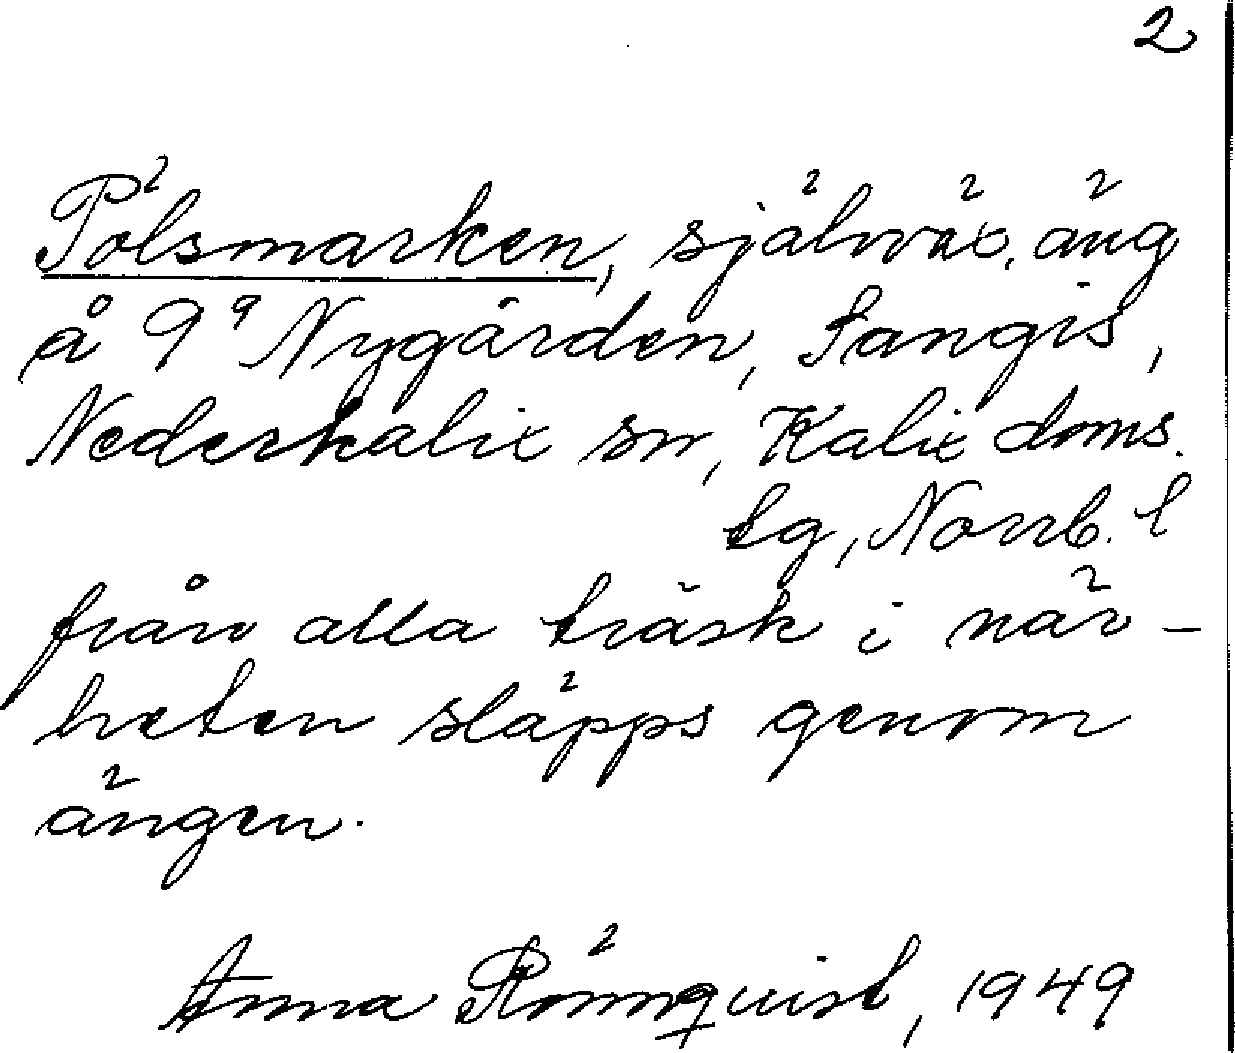 2
Pölsmarken, självväx. äng
å 9⁹ Nygården, Sangis,
Nederkalix sn, Kalix doms.
tg, Norrb. l
från alla träsk i när-
heten släpps genom
ängen.
Anna Rönnquist, 1949